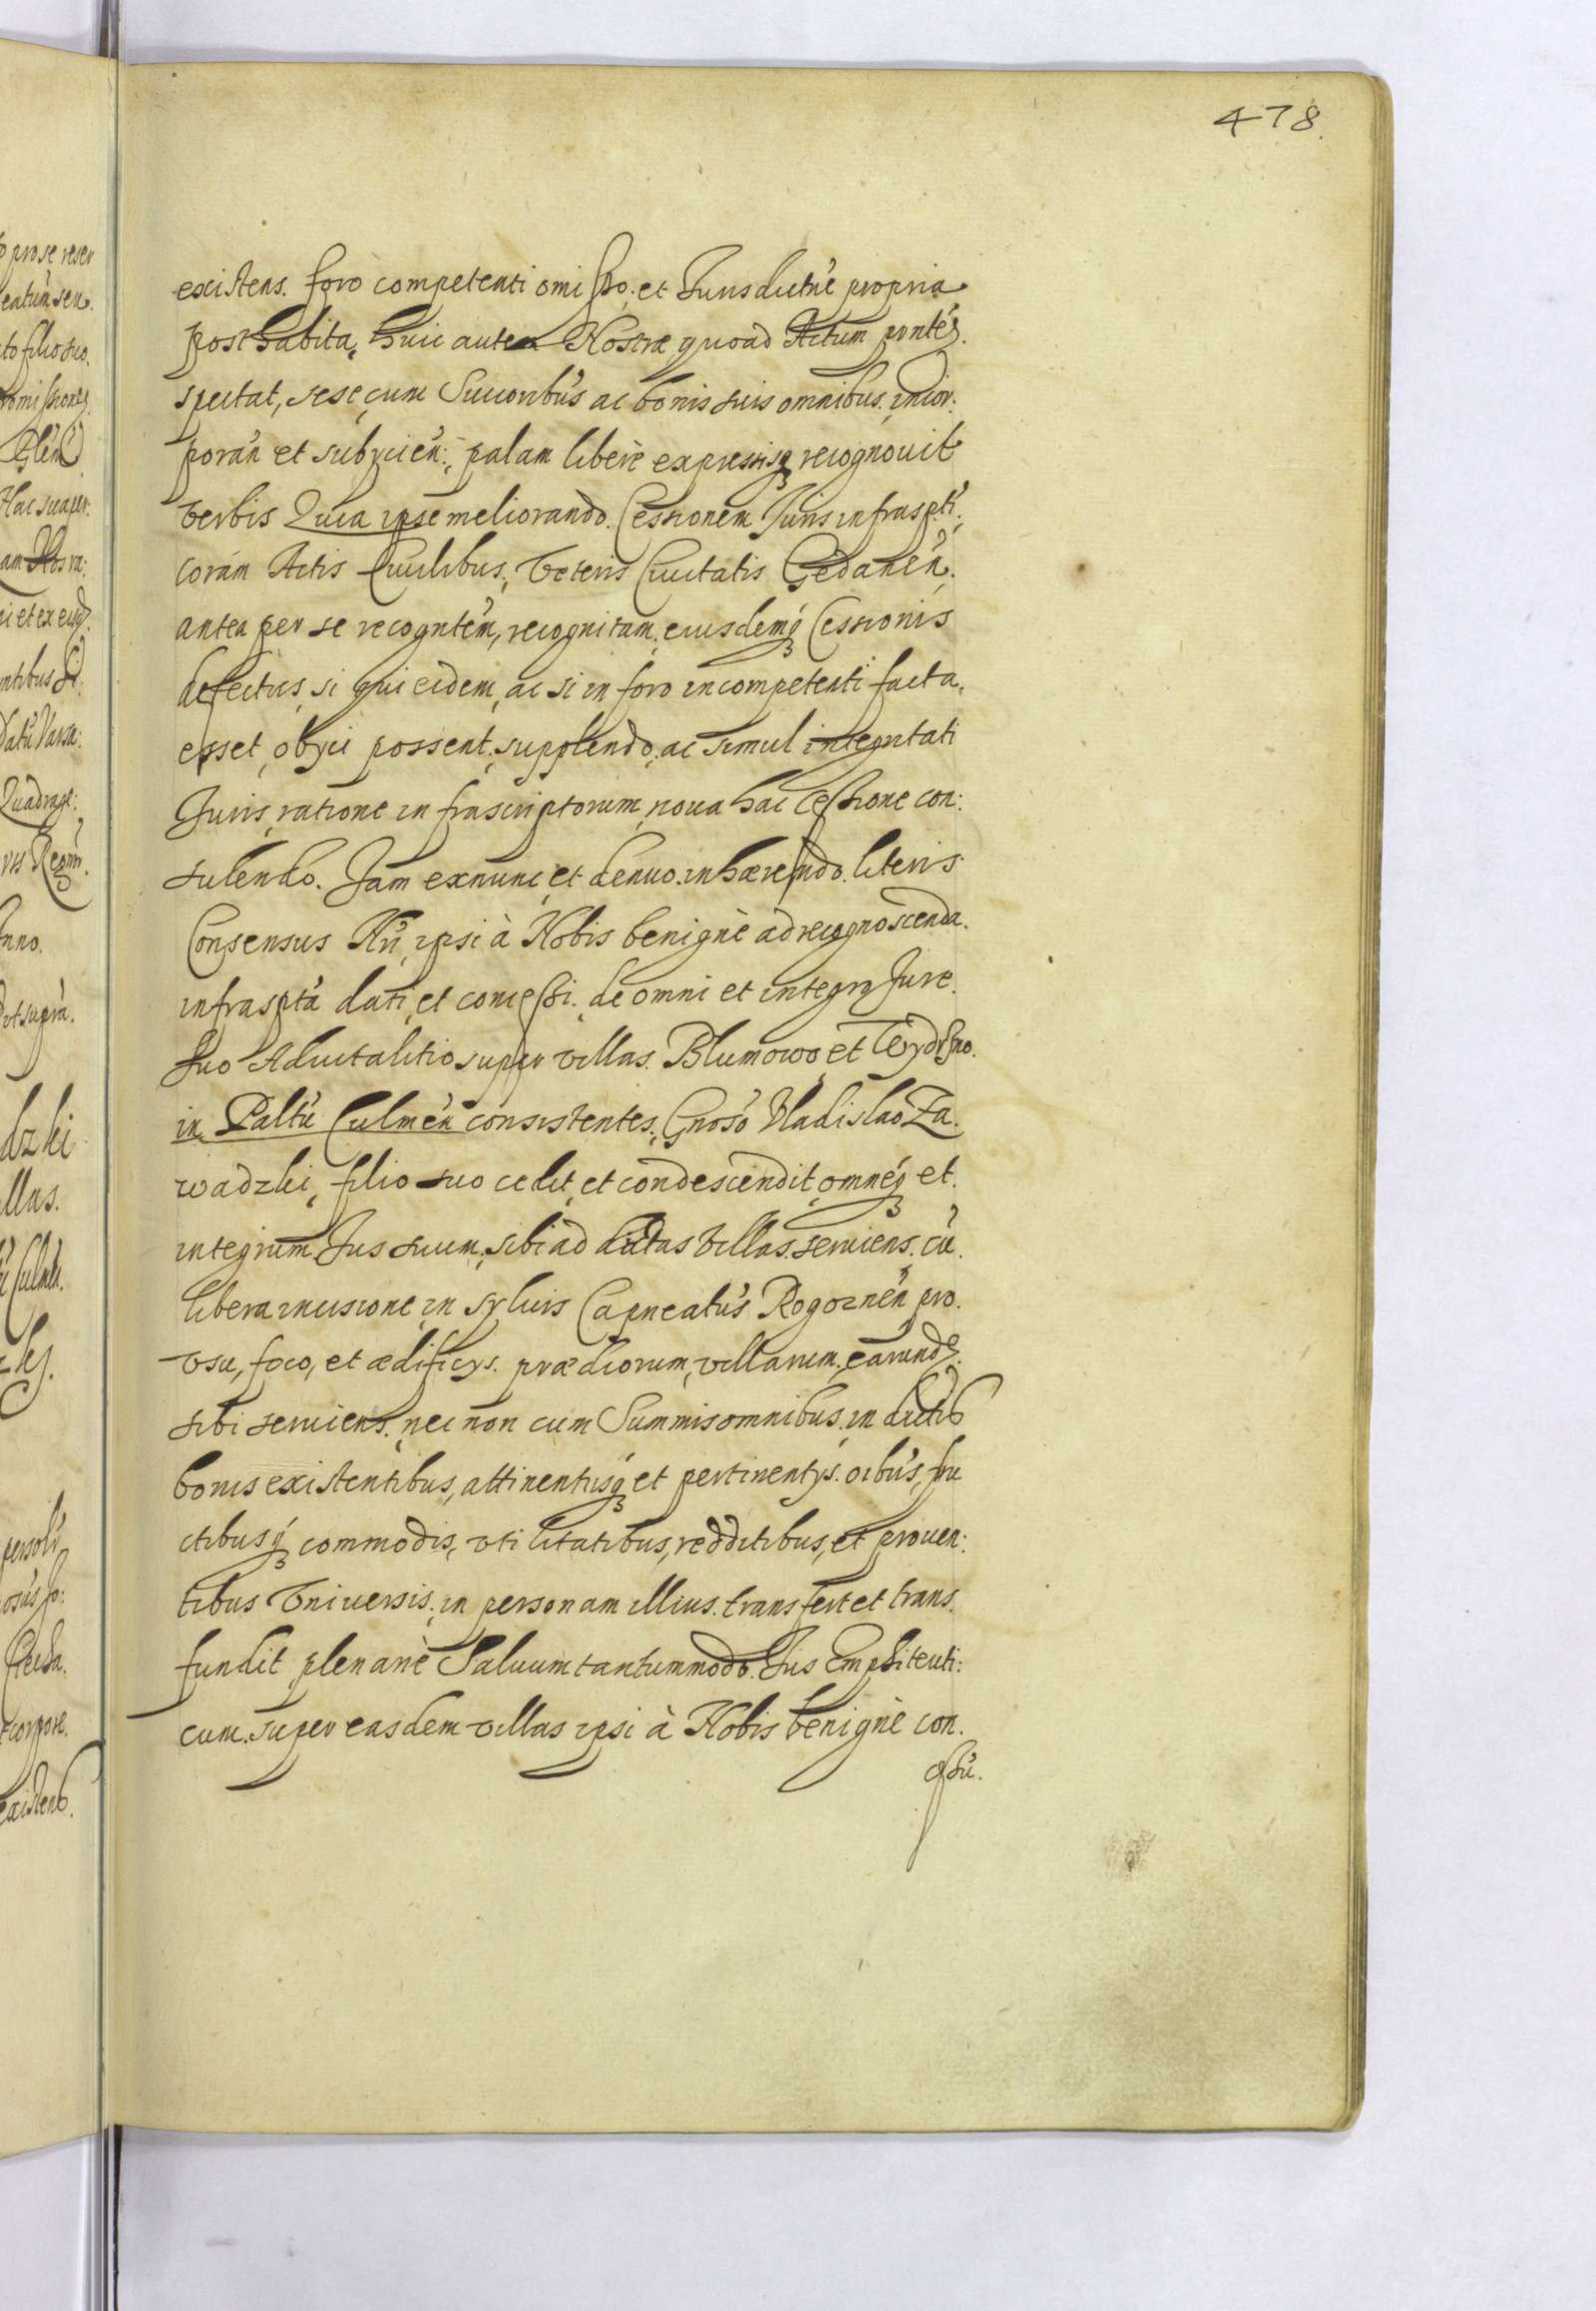 478.
existens. foro competenti omisso. et Jurisdictne propria
posthabita, huic autem Nostræ quoad Actum pnté.
spectat, sese cum Succoribus ac bonis suis omnibus. incor:
porań et subycień:, palam liberè expressisq recognouit
verbis Quia ipse meliorando. Cessionem Juris infrasptí,
coram Actis Ciuilibus, Veteris Ciuitatis Gedaneń.
antea per se recogntém, recognitam, eiusdemq Cessionis
defectus, si qui eidem, ac si in foro incompetenti facta,
esset, obyci possent, supplendo, ac simul integritati
Juris, ratione infrascriptorum, noua hac Cessione con:
sulendo. Jam exnunc, et denuo. inhærendo. literis
Consensus Nrí, ipsi à Nobis benignè ad recognoscenda.
infrasptá dati, et concessi. de omni et integro Jure.
suo Aduitalitio super villas. Blumowo, et Wydrzno.
in Paltú Culmeń consistentes, Gnoso Vladislao Za.
wadzki, filio suo cedit, et condescendit, omneq et.
integrum Jus suum, sibi ad dictas villas. seruiens. cú.
libera incisione, in syluis Capneatús Rogozneń pro.
vsu, foco, et ædificys. prædiorum, villarum. earund.
sibi seruiens. nec non cum Summis omnibus, in dictis
bonis existentibus, attinentysq et pertinentys. oibús, fru
ctibusq commodis, vtilitatibus, redditibus, et prouen:
tibus Vniuersis, in personam illius. transfert et trans.
fundit plenariè Saluum tantummodo. Jus Emphiteuti:
cum. super easdem villas ipsi à Nobis benignè con.
cessú.